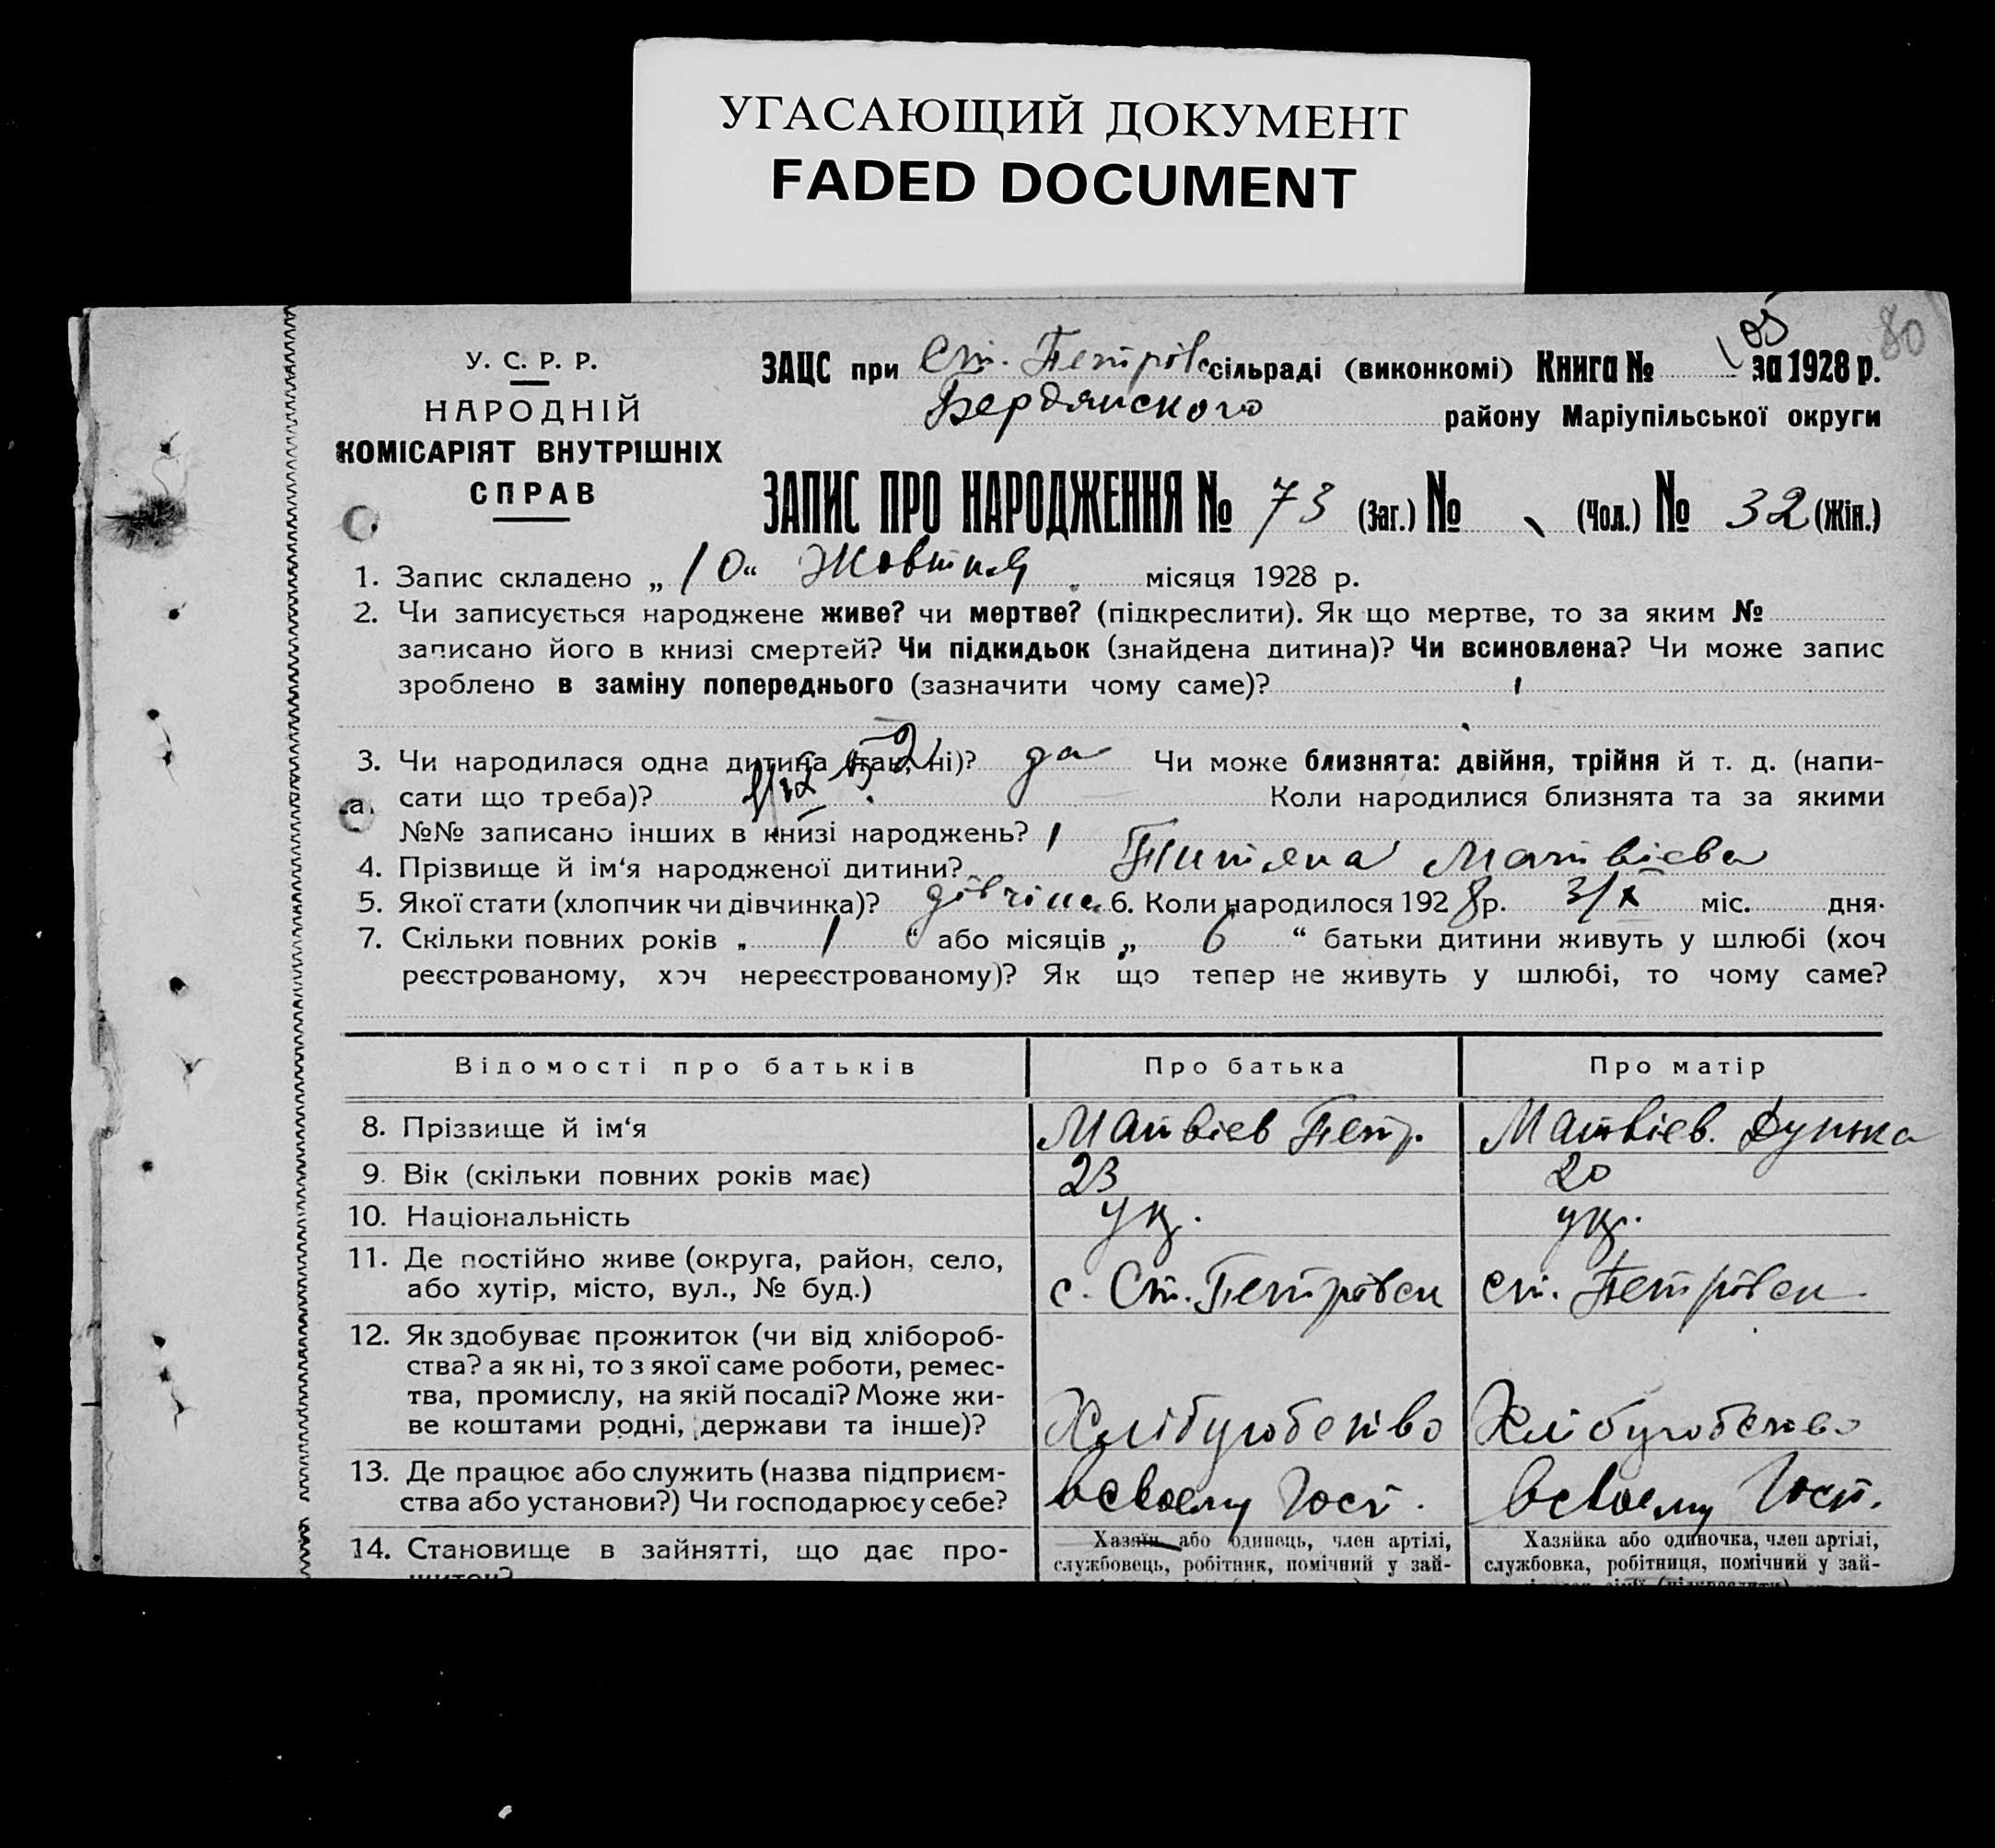 УГАСАЮЩИЙ ДОКУМЕНТ
FADED DOCUMENT
80
У. С. Р. Р.
НАРОДНІЙ
КОМІСАРІЯТ ВНУТРІШНІХ
СПРАВ
ЗАЦС при Ст. Петрівс сільраді (виконкомі) Книга № за 1928 р.
Бердянского району Маріупільської округи
ЗАПИС ПРО НАРОДЖЕННЯ № 73 (Заг.) № (Чол.) № 32 (Жін.)
1. Запис складено „10“ Жовтня місяця 1928 р.
2. Чи записується народжене живе? чи мертве? (підкреслити). Як що мертве, то за яким №
записано його в книзі смертей? Чи підкидьок (знайдена дитина)? Чи всиновлена? Чи може запис
зроблено в заміну попереднього (зазначити чому саме)?
3. Чи народилася одна дитина (так, ні)? да Чи може близнята: двійня, трійня й т. д. (напи-
сати що треба)? Коли народилися близнята та за якими
№№ записано інших в книзі народжень?
4. Прізвище й ім‘я народженої дитини? Титяна Матвієва
5. Якої стати (хлопчик чи дівчинка)? дівчина 6. Коли народилося 1928 р. 3/X міс. дня.
7. Скільки повних років „ 1 “ або місяців „ 6 “ батьки дитини живуть у шлюбі (хоч
реєстрованому, хоч нереєстрованому)? Як що тепер не живуть у шлюбі, то чому саме?
Відомості про батьків Про батька Про матір
8. Прізвище й ім‘я Матвієв Петр. Матвієв. Дунька
9. Вік (скільки повних років має) 23 20
10. Національність ук. ук.
11. Де постійно живе (округа, район, село,
або хутір, місто, вул., № буд.) с. Ст. Петрівси ст. Петрівси
12. Як здобуває прожиток (чи від хлібороб-
ства? а як ні, то з якої саме роботи, ремес-
тва, промислу, на якій посаді? Може жи-
ве коштами родні, держави та інше)?
13. Де працює або служить (назва підприєм-
ства або установи?) Чи господарює у себе? всвоему Гост. всвоему Гост.
14. Становище в зайнятті, що дає про-
Хазяїн або одинець, член артілі,
службовець, робітник, помічний у зай-
Хазяйка або одиночка, член артілі,
службовка, робітниця, помічний у зай-